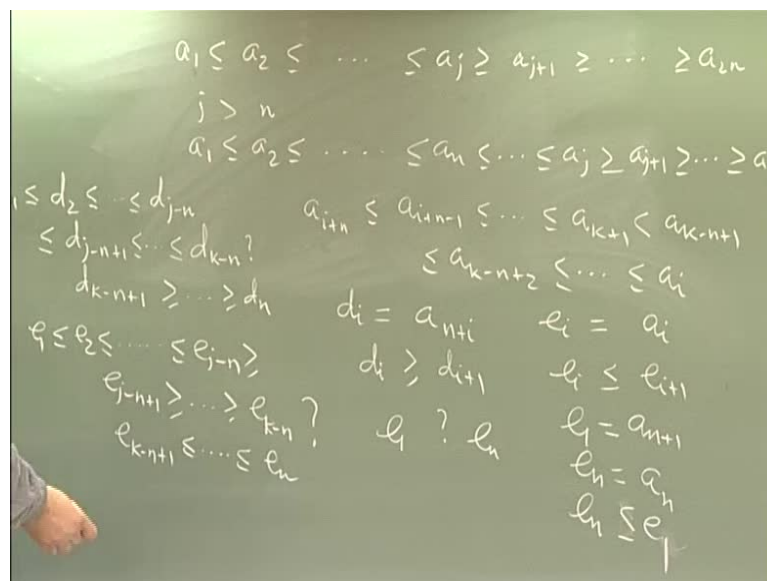 a₁ ≤ a₂ ≤ ⋯ ≤ aⱼ ≥ aⱼ₊₁ ≥ ⋯ ≥ a₂ₙ
j > n
a₁ ≤ a₂ ≤ ⋯⋯ ≤ aₙ ≤ ⋯ ≤ aⱼ ≥ aⱼ₊₁ ≥ ⋯ ≥ a
≤ d₂ ≤ ⋯ ≤ dⱼ₋ₙ
≤ dⱼ₋ₙ₊₁ ≤ ⋯ ≤ dₖ₋ₙ ?
dₖ₋ₙ₊₁ ≥ ⋯ ≥ dₙ
e₁ ≤ e₂ ≤ ⋯⋯ ≤ eⱼ₋ₙ ≥
eⱼ₋ₙ₊₁ ≥ ⋯ ≥ eₖ₋ₙ ?
eₖ₋ₙ₊₁ ≤ ⋯⋯ ≤ eₙ
aᵢ₊ₙ ≤ aᵢ₊ₙ₋₁ ≤ ⋯ ≤ aₖ₊₁ < aₖ₋ₙ₊₁
≤ aₖ₋ₙ₊₂ ≤ ⋯ ≤ aᵢ
dᵢ = aₙ₊ᵢ
dᵢ ≥ dᵢ₊₁
e₁ ? eₙ
eᵢ = aᵢ
eᵢ ≤ eᵢ₊₁
e₁ = aₙ₊₁
eₙ = aₙ
eₙ ≤ e₁